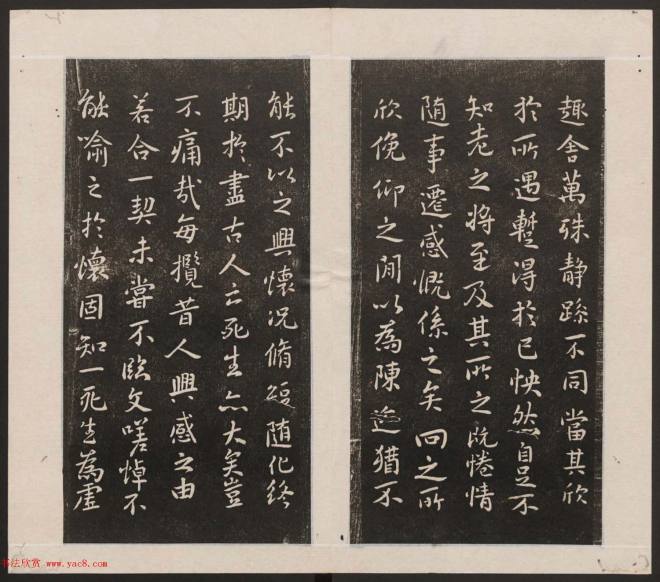 趣舍萬殊静躁不同當其欣
於所遇蹔得於己怏然自足不
知老之將至及其所之既惓情
随事遷感慨係之矣向之所
欣俛仰之閒以為陳迹猶不
能不以之興懷况脩短随化終
期於盡古人云死生亦大矣豈
不痛哉每攬昔人興感之由
若合一契未嘗不臨文嗟悼不
能喻之於懷固知一死生為虛
书法欣赏 www.yac8.com